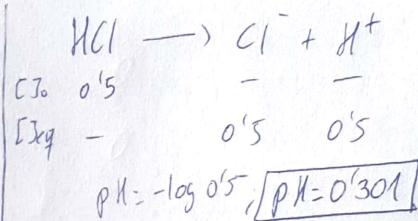 HCl ⟶ Cl⁻ + H⁺
[ ]₀ 0'5 – –
[ ]eq – 0'5 0'5
pH = -log 0'5, pH = 0'301